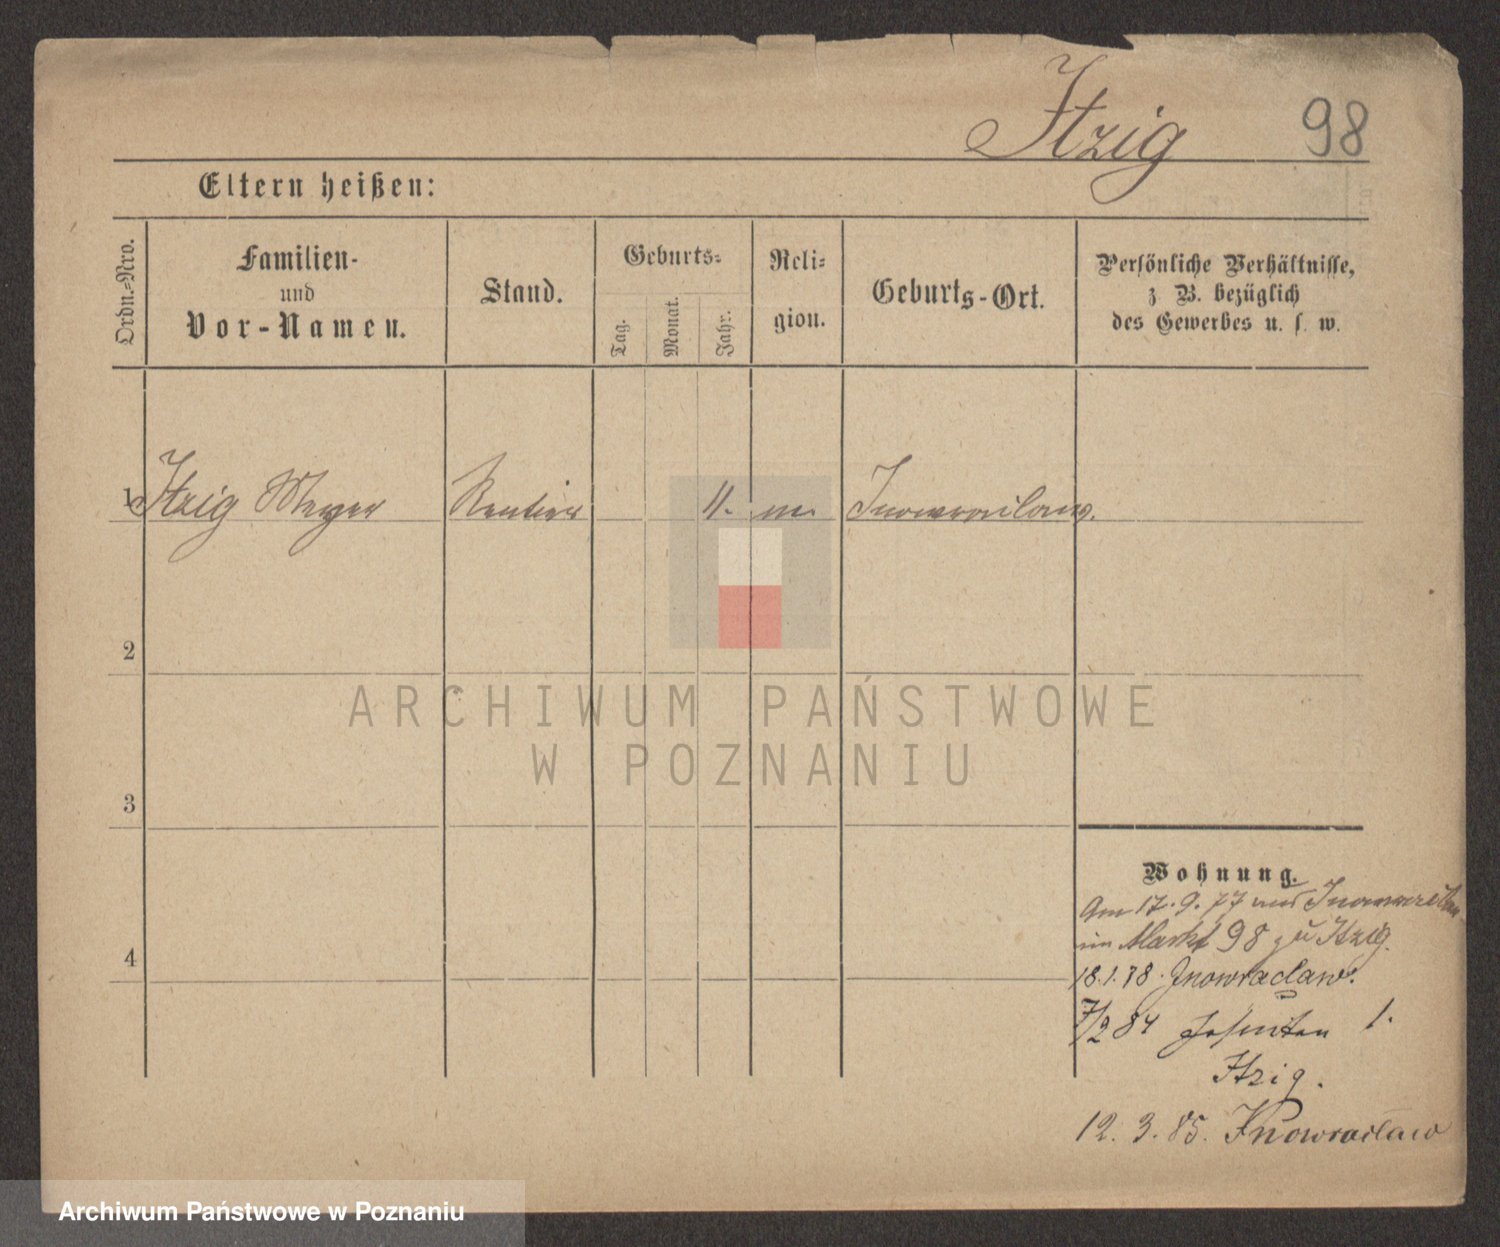 Itzig 98
Eltern heißen:
Ordn.-Nro.
Familien-
und
Vor-Namen.
Stand.
Geburts-
Tag.
Monat.
Jahr.
Reli-
gion.
Geburts-Ort.
Persönliche Verhältnisse,
z. B. bezüglich
des Gewerbes u. s. w.
1 Itzig Meyer Rentier 11. m. Inowraclaw.
2
3
4
Wohnung.
Am 17.9.77 aus Inowraclaw
im Markt 98 zu Itzig.
18.1.78. Inowraclaw.
7/2 84 Jesuiten 1.
Itzig.
12.3.85. Inowraclaw
ARCHIWUM PAŃSTWOWE
W POZNANIU
Archiwum Państwowe w Poznaniu